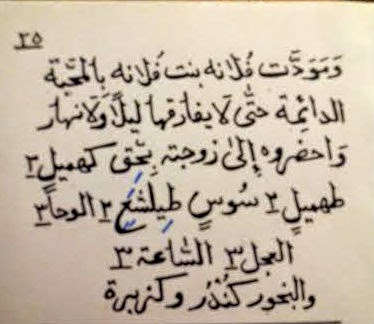 ٢٥
وَمَوَدَّت فُلانه بنت فُلانه بِالمَحَبة
الدائِمة حتَّى لَا يفارقها ليلًا وَلَا نهار
وَاحضروه إِلىٰ زوجته بِحَق كهميلٍ ٢
طهميلٍ ٢ سُوسٍ طِيلشَغٍ ٢ الوحاً ٣
العجل ٣ السَّاعة ٣
والبخور كُنْدُر وكزبرة